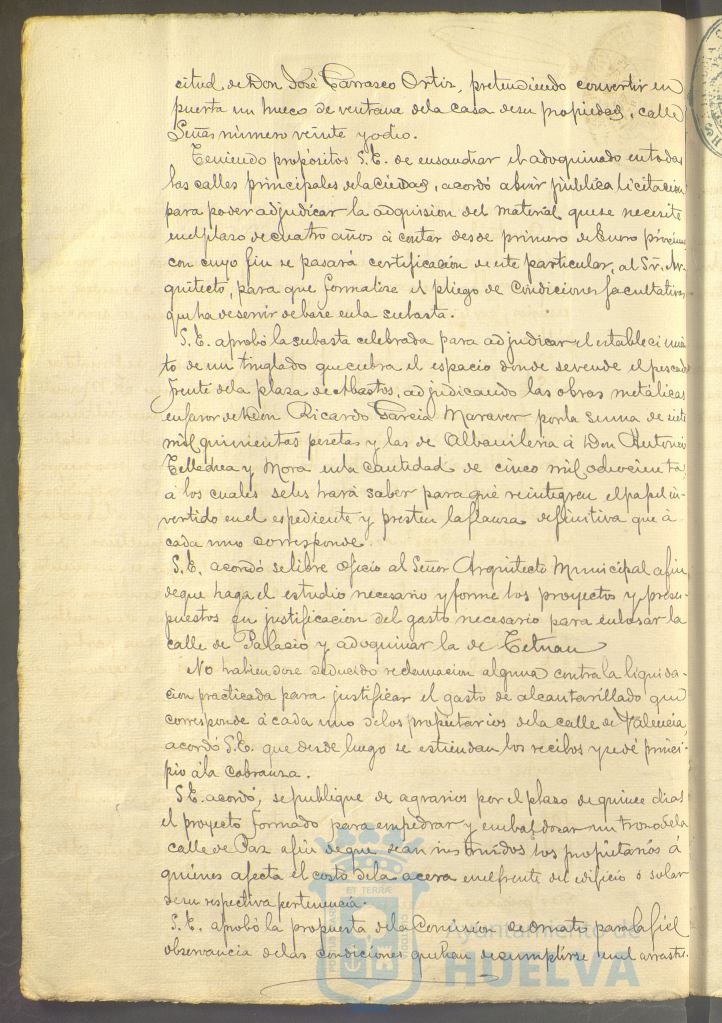 citud de Don José Carrasco Ortiz, pretendiendo convertir en
puerta un hueco de ventana dela casa desu propiedad, calle
Señas número veinte y ocho.
Teniendo propósitos S.E. de ensanchar el adoquinado en todas
las calles principales dela Ciudad, acordó abrir pública licitación
para poder adjudicar la adquision del material quese necesite
enel plazo de cuatro años á contar desde primero de Enero próximo
con cuyo fin se pasará certificación de este particular, al Sr. Ar-
quitecto, para que formalice el pliego de Condiciones facultativas
que ha de servir debase enla subasta.
S.E. aprobó la subasta celebrada para adjudicar el establecimien
to de un tinglado que cubra el espacio donde sevende el pescado
frente dela plaza de Abastos, adjudicando las obras metálicas
enfavor de Don Ricardo Garcia Maraver porla suma de siete
mil quinientas pesetas y las de Albañileria á Don Antonio
y Mora enla cantidad de cinco mil odocienta
á los cuales seles hará saber para qué reintegren el papel in-
vertido en el espediente y presten la fianza definitiva que á
cada uno corresponde.
S.E. acordó se libre oficio al Señor Arquitecto Municipal afin
deque haga el estudio necesario y forme los proyectos y presu-
puestos en justificación del gasto necesario para enlosar la
calle de Palacio y adoquinar la de Tetuan
No habiendose deducido reclamacion alguna contra la liquida-
cion practicada para justificar el gasto de alcantarillado que
corresponde á cada uno delos propietarios dela calle de Valencia,
acordó S.E. que desde luego se estiendan los recibos y sedé princi-
pio ála Cobranza.
S.E. acordó, se publique de agrarios por el plazo de quince dias
el proyecto formado para empedrar y embaldosar un trozo dela
calle de Paz afin deque sean instruidos los propietarios á
quienes afecta el costo dela acera enel frente del edificio ó solar
desu respectiva pertenencia.
S.E. aprobó la propuesta dela Comision de Ornato para la fiel
observancia delas condiciones que han decumplirse enel arrastre
Ayuntamiento de
HUELVA